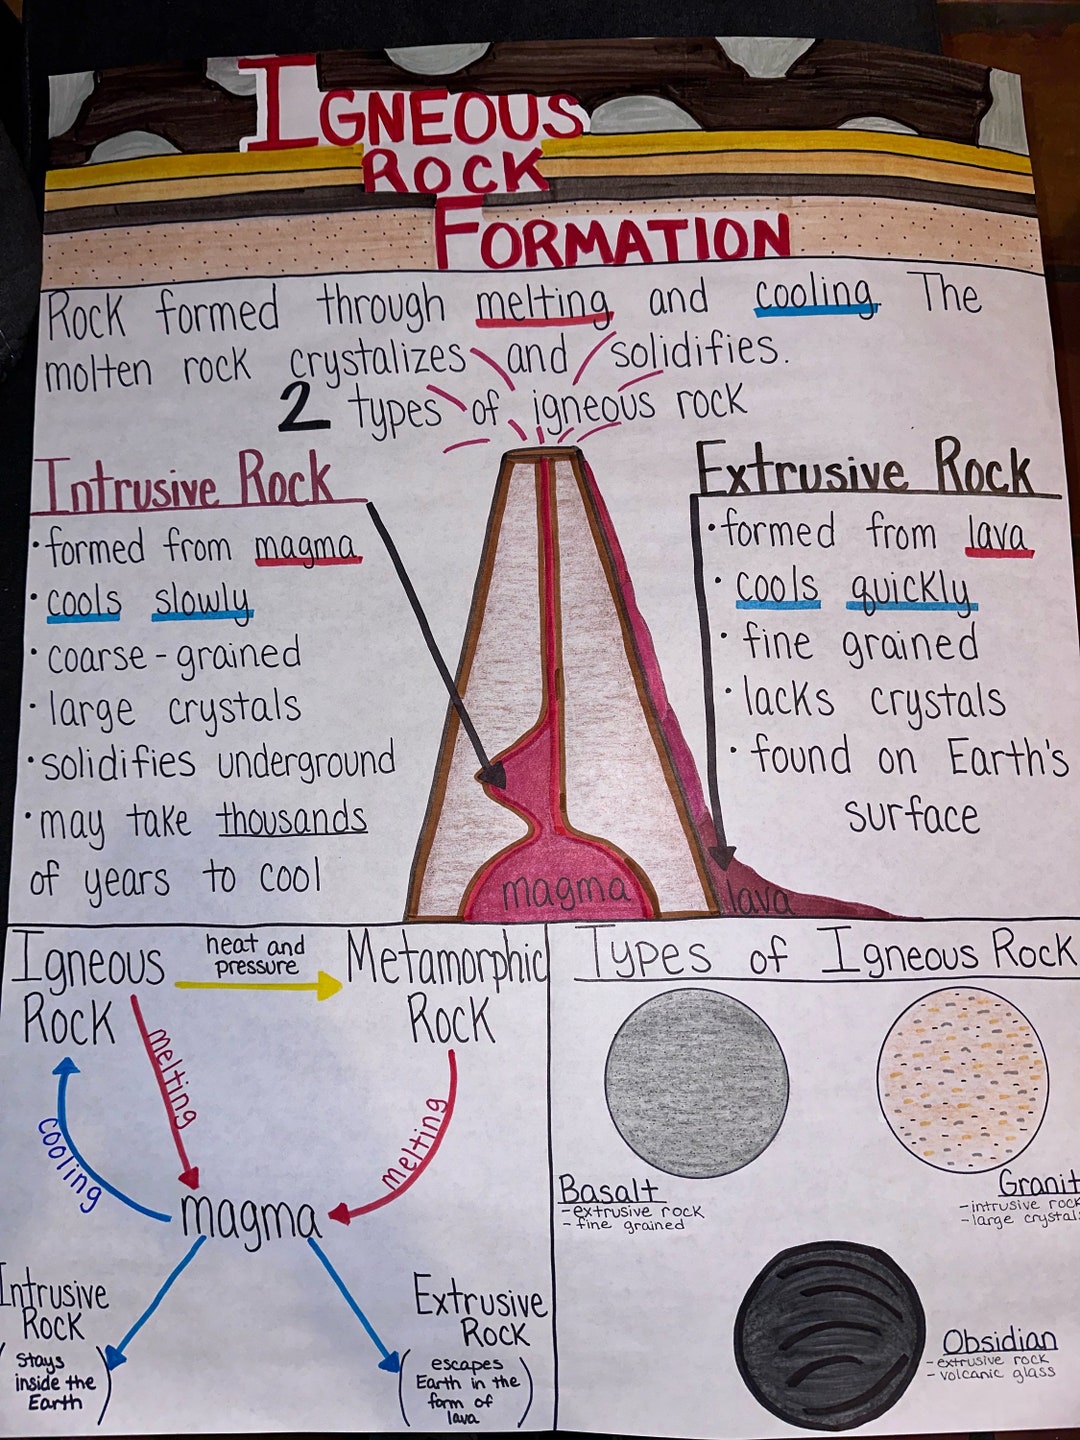 IGNEOUS
ROCK
FORMATION
Rock formed through melting and cooling. The
molten rock crystalizes and solidifies.
2 types of igneous rock
Intrusive Rock
•formed from magma
•cools slowly
•coarse-grained
•large crystals
•solidifies underground
•may take thousands
of years to cool
Extrusive Rock
•formed from lava
•cools quickly
•fine grained
•lacks crystals
•found on Earth's
surface
magma
lava
Igneous
Rock
heat and
pressure
Metamorphic
Rock
melting
cooling
melting
magma
Intrusive
Rock
(stays
inside the
Earth)
Extrusive
Rock
(escapes
Earth in the
form of
lava)
Types of Igneous Rock
Basalt
-extrusive rock
-fine grained
Granit
-intrusive rock
-large crystals
Obsidian
-extrusive rock
-volcanic glass